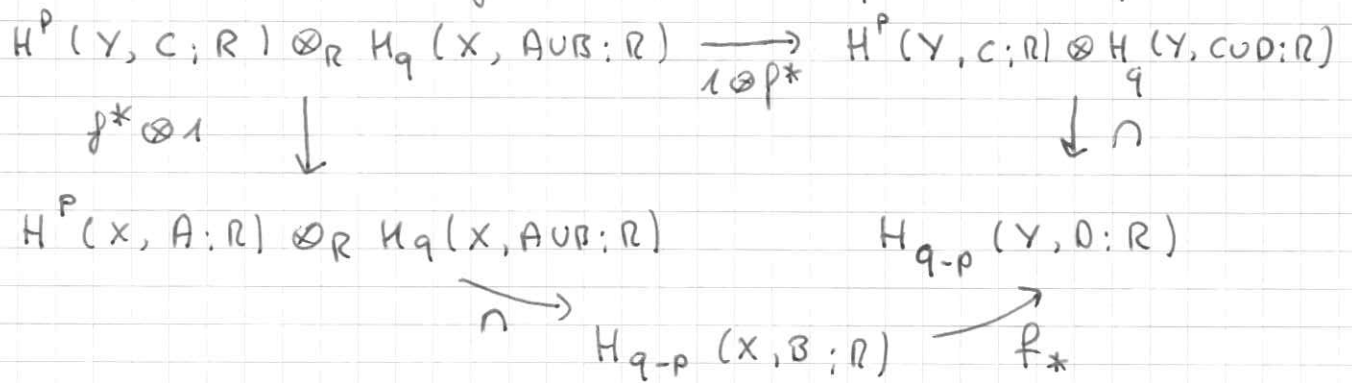 H^p (Y, C; R) ⊗_R H_q (X, A∪B; R) ⟶ H^p (Y, C; R) ⊗ H_q (Y, C∪D; R)
1⊗f*
f* ⊗ 1 ↓ ↓ ∩
H^p (X, A; R) ⊗_R H_q (X, A∪B; R) H_{q-p} (Y, D; R)
∩ → H_{q-p} (X, B; R) → f_*